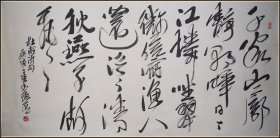 千家山郭
静朝晖日日
江楼坐翠
微信宿渔人
还泛泛清
秋燕子故
飞飞
杜甫诗